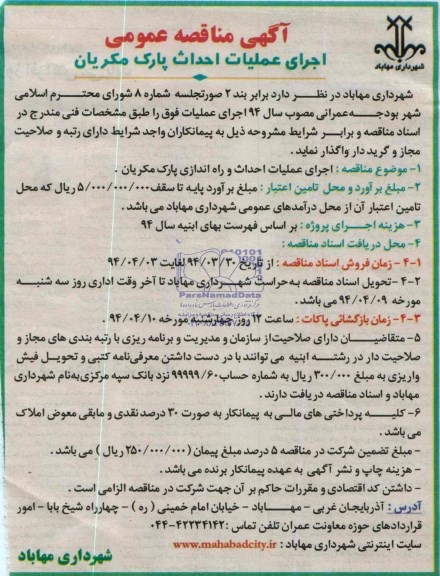 آگهی مناقصه عمومی
اجرای عملیات احداث پارک مکریان
شهرداری مهاباد
شهرداری مهاباد در نظر دارد برابر بند ۲ صورتجلسه شماره ۸ شورای محترم اسلامی
شهر بودجه عمرانی مصوب سال ۹۴ اجرای عملیات فوق را طبق مشخصات فنی مندرج در
اسناد مناقصه و برابر شرایط مشروحه ذیل به پیمانکاران واجد شرایط دارای رتبه و صلاحیت
مجاز و گرید دار واگذار نماید.
۱- موضوع مناقصه : اجرای عملیات احداث و راه اندازی پارک مکریان .
۲- مبلغ برآورد و محل تامین اعتبار : مبلغ برآورد پایه تا سقف ۵/۰۰۰/۰۰۰/۰۰۰ ریال که محل
تامین اعتبار آن از محل درآمدهای عمومی شهرداری مهاباد می باشد.
۳- هزینه اجرای پروژه : بر اساس فهرست بهای ابنیه سال ۹۴
۴- محل دریافت اسناد مناقصه :
۴-۱- زمان فروش اسناد مناقصه : از تاریخ ۹۴/۰۳/۳۰ لغایت ۹۴/۰۴/۰۳
۴-۲- تحویل اسناد مناقصه به حراست شهرداری مهاباد تا آخر وقت اداری روز سه شنبه
مورخه ۹۴/۰۴/۰۹ می باشد.
۴-۳- زمان بازگشائی پاکات : ساعت ۱۲ روز چهارشنبه مورخه ۹۴/۰۴/۱۰ .
۵- متقاضیان دارای صلاحیت از سازمان و مدیریت و برنامه ریزی با رتبه بندی های مجاز و
صلاحیت دار در رشته ابنیه می توانند با در دست داشتن معرفی نامه کتبی و تحویل فیش
واریزی به مبلغ ۳۰۰/۰۰۰ ریال به شماره حساب ۹۹۹۹۹/۶۰ نزد بانک سپه مرکزی به نام شهرداری
مهاباد و اسناد مناقصه دریافت دارند .
۶- کلیه پرداختی های مالی به پیمانکار به صورت ۳۰ درصد نقدی و مابقی معوض املاک
می باشد .
- مبلغ تضمین شرکت در مناقصه ۵ درصد مبلغ پیمان (۲۵۰/۰۰۰/۰۰۰ ریال ) می باشد .
- هزینه چاپ و نشر آگهی به عهده پیمانکار برنده می باشد.
- داشتن کد اقتصادی و مقررات حاکم بر آن جهت شرکت در مناقصه الزامی است .
آدرس : آذربایجان غربی - مهاباد - خیابان امام خمینی ( ره ) - چهارراه شیخ بابا - امور
قراردادهای حوزه معاونت عمران تلفن تماس : ۴۲۲۳۴۱۴۲-۰۴۴
سایت اینترنتی شهرداری مهاباد : www.mahabadcity.ir
شهرداری مهاباد
ParsNamadData